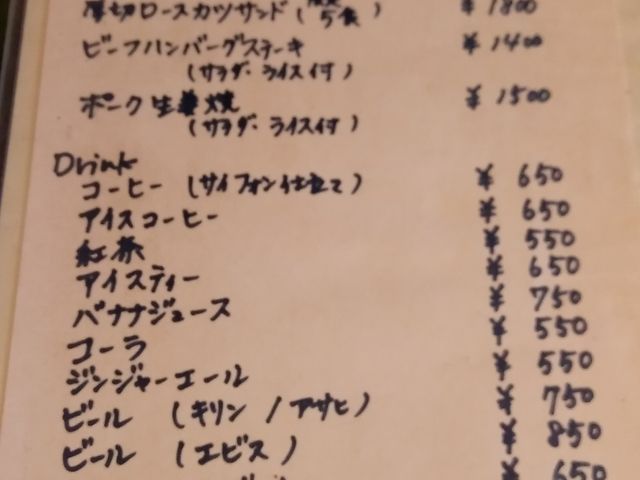 厚切ロースカツサンド (限定5食) ¥1800
ビーフハンバーグステーキ ¥1400
(サラダ・ライス付)
ポーク生姜焼 ¥1500
(サラダ・ライス付)
Drink
コーヒー (サイフォン仕立て) ¥650
アイスコーヒー ¥650
紅茶 ¥550
アイスティー ¥650
バナナジュース ¥750
コーラ ¥550
ジンジャーエール ¥550
ビール (キリン / アサヒ) ¥750
ビール (エビス) ¥850
¥650